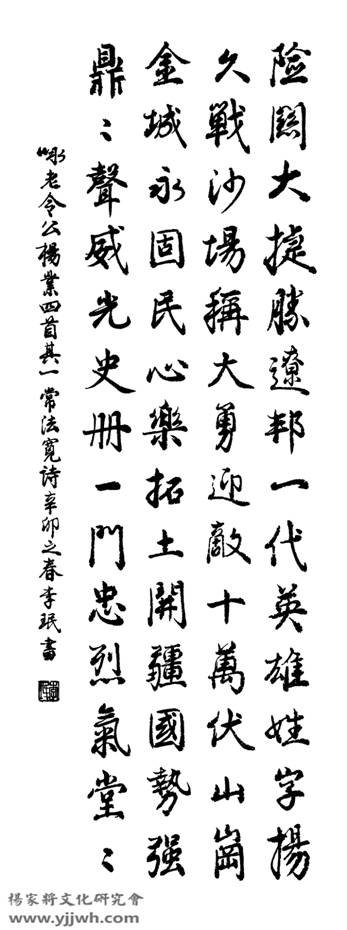 險關大捷勝遼邦一代英雄姓字揚
久戰沙場稱大勇迎敵十萬伏山崗
金城永固民心樂拓土開疆國勢强
鼎〻聲威光史册一門忠烈氣堂〻
咏老令公楊業四首其一常法寬詩辛卯之春李珉書
楊家將文化研究會
www.yjjwh.com